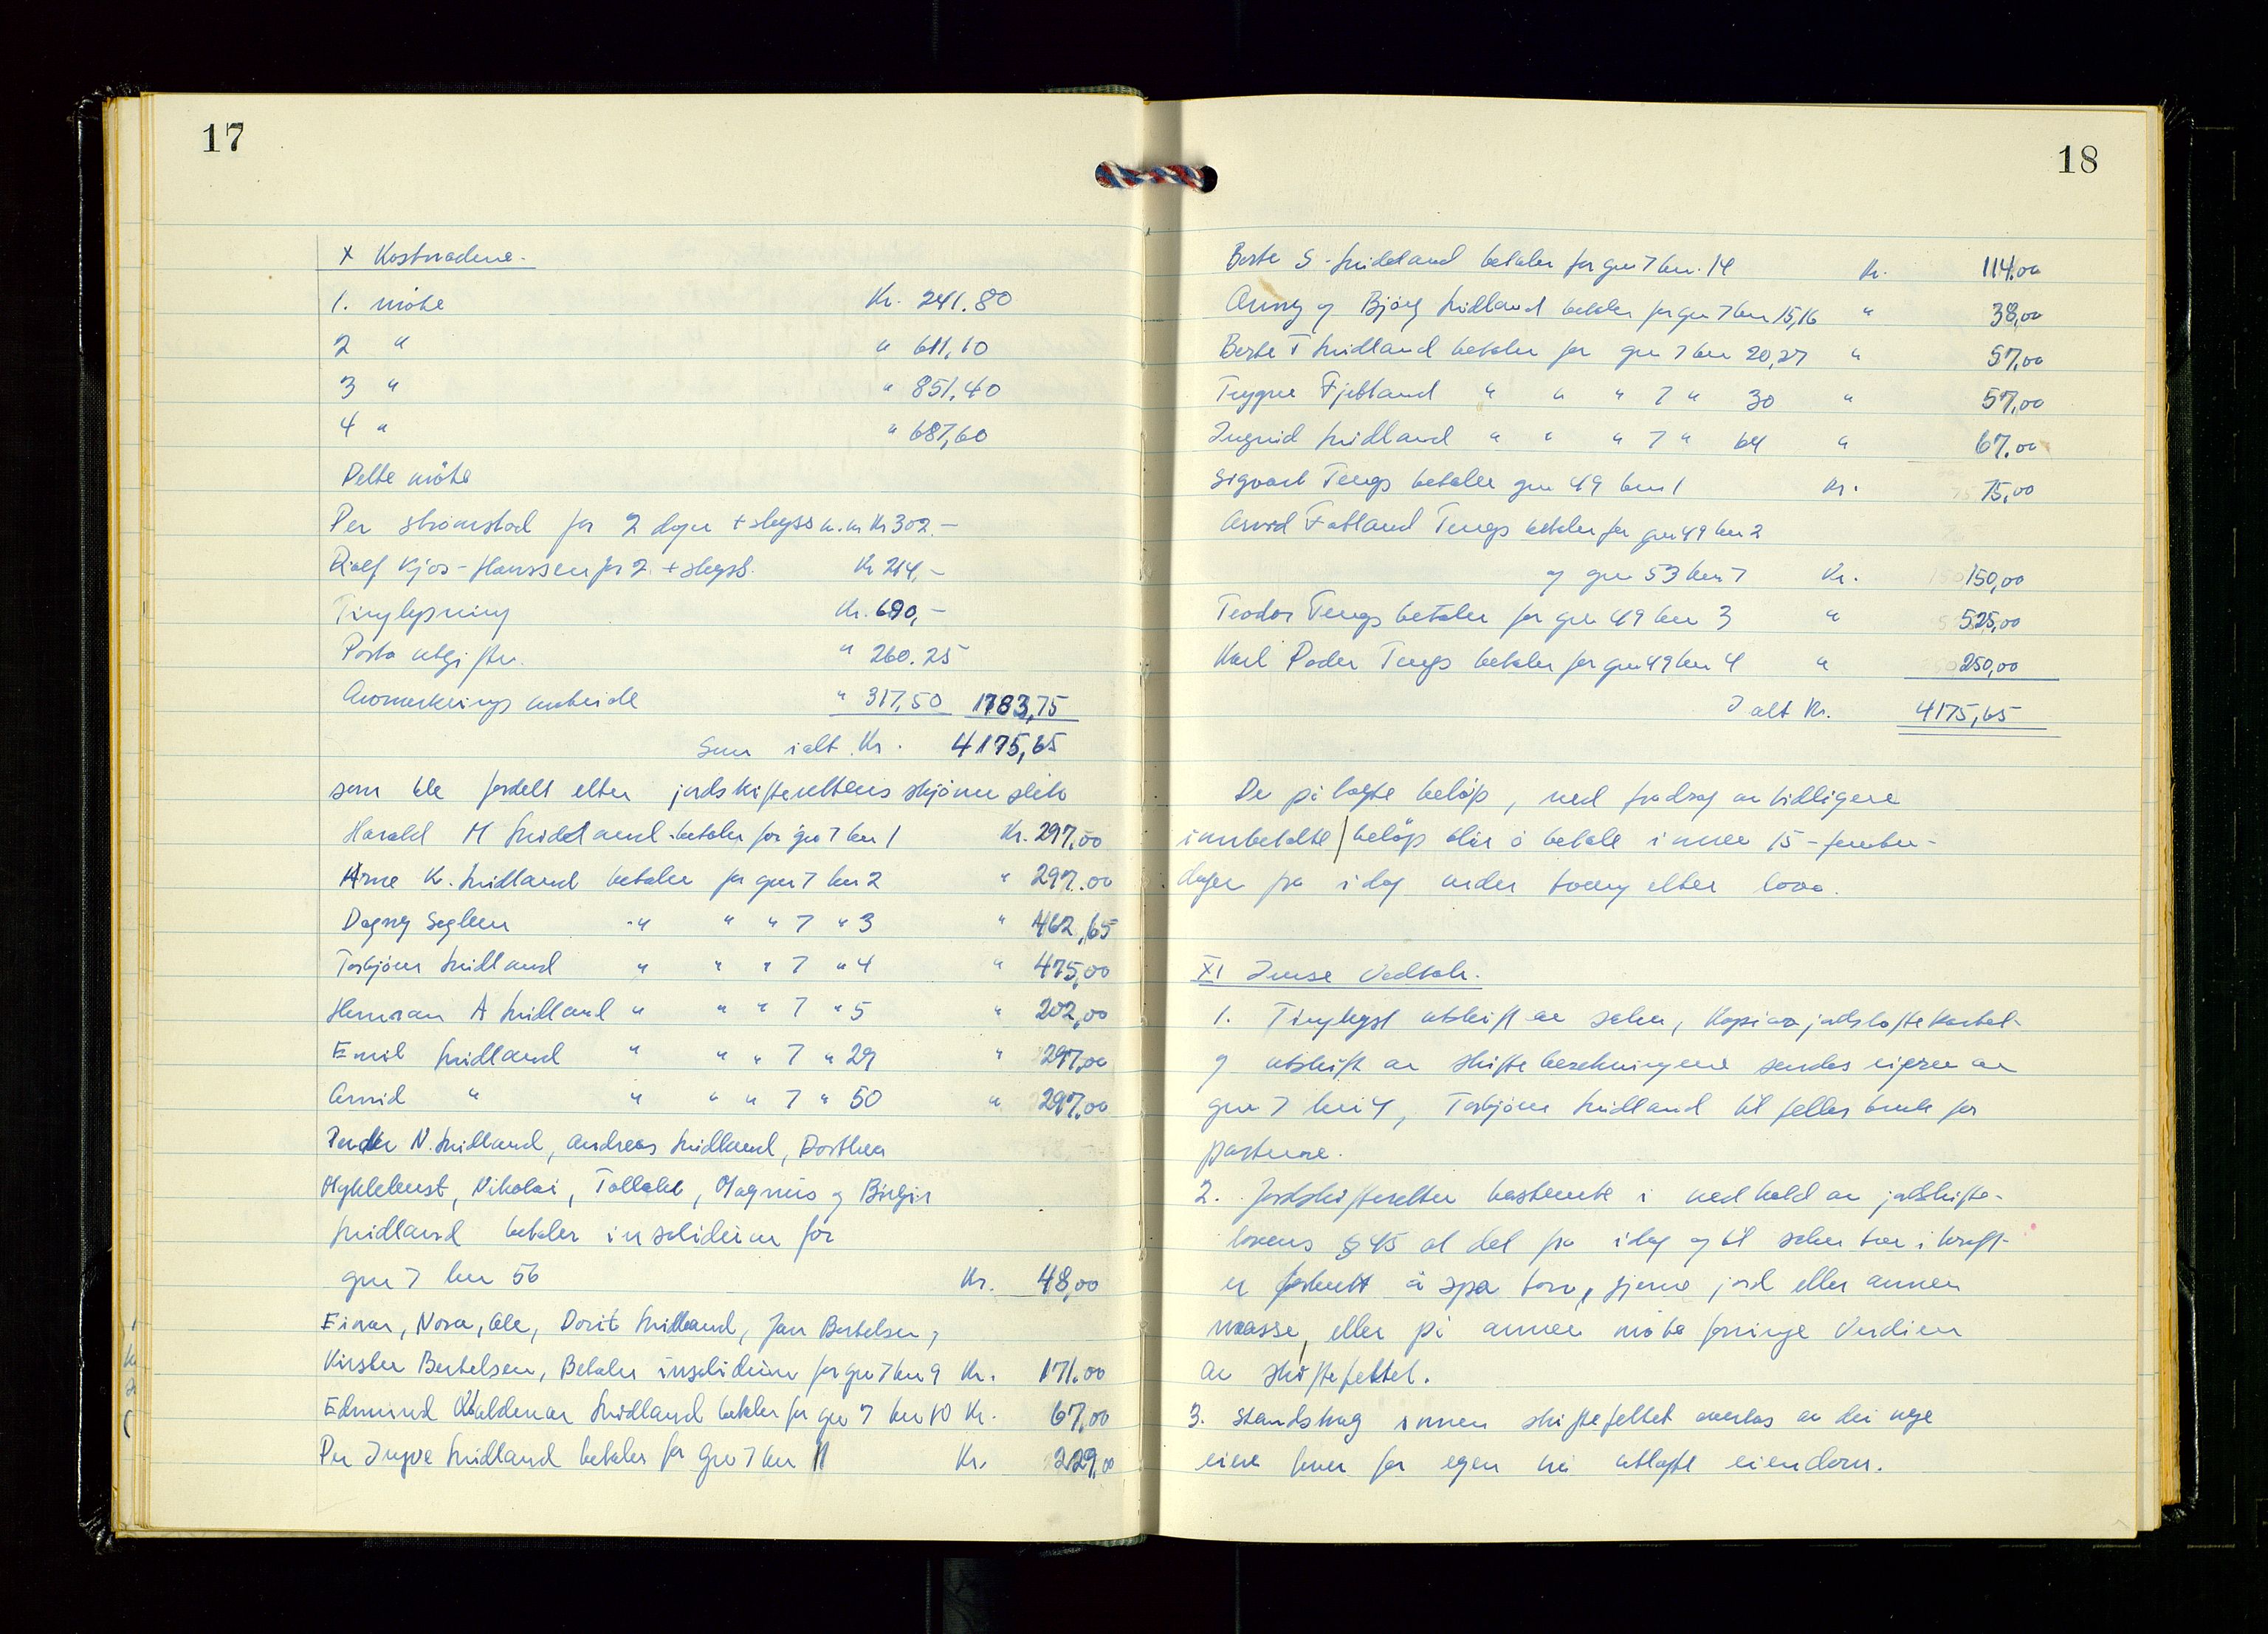 17
X Kostnadene.
1. møte Kr. 241.80
2 " " 611,10
3 " " 851,40
4 " " 687,60
Dette møte
Per Strømstad for 2 dager + skyss m.m Kr 302.-
Rolf Kjos-Hanssen for 2. + skyss. Kr 214,-
Tinglysning Kr. 690,-
Porto utgifter. " 260.25
Avmerkings arbeide " 317,50 1783,75
Sum ialt Kr. 4175,65
som ble fordelt etter jordskifterettens skjønn slik
Harald M Midtland betaler for gnr 7 bnr 1 Kr. 297,00
Arne K. Midtland betaler for gnr 7 bnr 2 " 297.00
Dagny Seglem " " " 7 " 3 " 462,65
Torbjørn Midtland " " " 7 " 4 " 475,00
Herman A Midtland " " " 7 " 5 " 202,00
Emil Midtland " " " 7 " 29 " 297,00
Arvid " " " " 7 " 50 " 297,00
Peder N. Midtland, Andreas Midtland, Dorthea
Myklebust, Nikolai, Tollak, Magnus og Birger
Midtland betaler insolidum for
gnr 7 bnr 56 Kr. 48,00
Einar, Nora, Ole, Dorit Midtland, Jan Bertelsen,
Kirsten Bertelsen, Betaler insolidum for gnr 7 bnr 9 Kr. 171.00
Edmund Valdemar Midtland betaler for gnr 7 bnr 10 Kr. 67,00
Per Ingve Midtland betaler for Gnr 7 bnr 11 Kr. 229,00
18
Berte S. Midtland betaler for gnr 7 bnr. 14 Kr. 114.00
Anny og Bjørg Midtland betaler for gnr 7 bnr 15,16 " 38,00
Berte T Midtland betaler for gnr 7 bnr 20,27 " 57,00
Trygve Fjetland " " " 7 " 30 " 57,00
Ingrid Midtland " " " 7 " 64 " 67.00
Sigvart Tengs betaler gnr 49 bnr 1 Kr. 75,00
Arvid Fotland Tengs betaler for gnr 49 bnr 2
og gnr 53 bnr 7 Kr. 150,00
Teodor Tengs betaler for gnr 49 bnr 3 " 525,00
Karl Peder Tengs betaler for gnr 49 bnr 4 " 250,00
I alt Kr. 4175,65
De pålagte beløp, med fradrag av tidligere
innbetalte beløp blir å betale innen 15-femten-
dager fra i dag under tvang etter lova.
XI Ymse Vedtak.
1. Tinglyst utskrift av saken, Kopi av jordskiftekartet
og utskrift av skifteberekningene sendes eieren av
gnr 7 bnr 4, Torbjørn Midtland til felles bruk for
partene.
2. Jordskifteretten bestemte i medhold av jordskifte-
lovens § 45 at det fra i dag og til saken trer i kraft
er forbudt å spa torv, fjerne jord eller annen
masse, eller på annen måte forringe Verdien
av skiftefeltet.
3. Standskog innen skiftefeltet overtas av dei nye
eiere hver for egen ni utlagte eiendom.